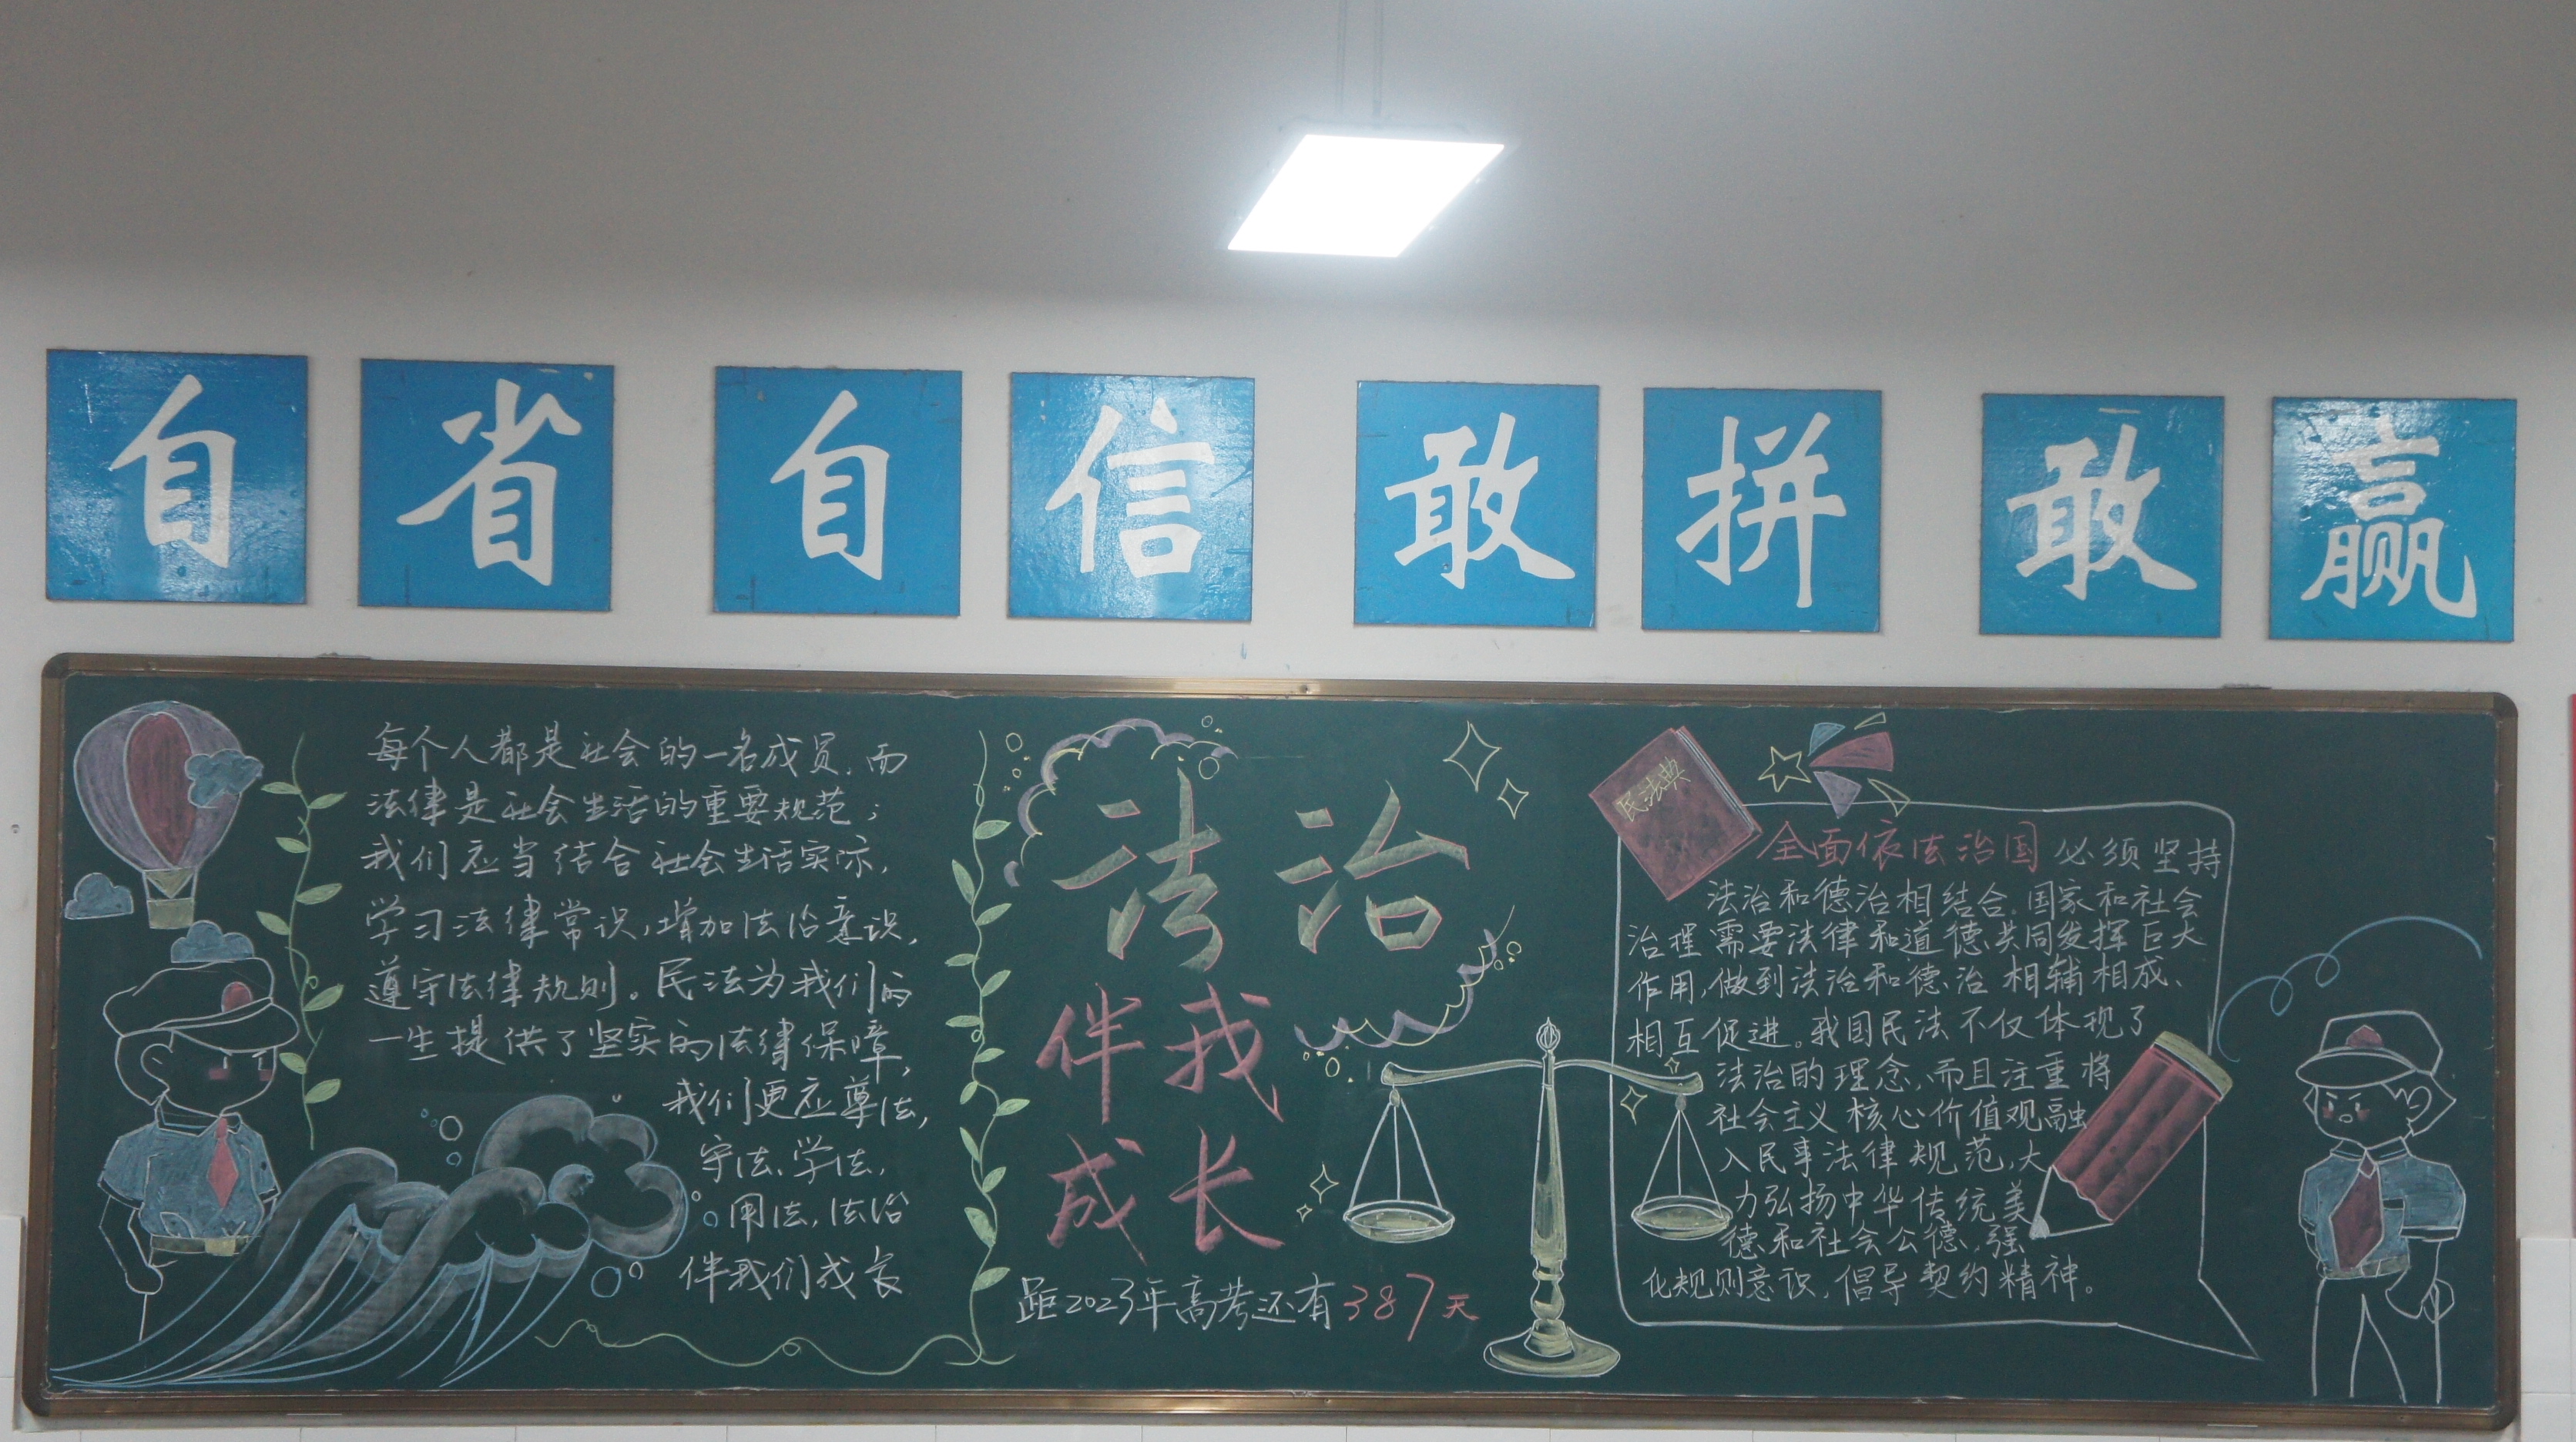 自省自信敢拼敢赢
每个人都是社会的一名成员,而
法律是社会生活的重要规范;
我们应当结合社会生活实际,
学习法律常识,增加法治意识,
遵守法律规则。民法为我们的
一生提供了坚实的法律保障,
我们更应尊法,
守法、学法,
用法,法治
伴我们成长
法治
伴我
成长
距2023年高考还有387天
民法典
全面依法治国必须坚持
法治和德治相结合。国家和社会
治理需要法律和道德共同发挥巨大
作用,做到法治和德治相辅相成、
相互促进。我国民法不仅体现了
法治的理念,而且注重将
社会主义核心价值观融
入民事法律规范,大
力弘扬中华传统美
德和社会公德,强
化规则意识,倡导契约精神。